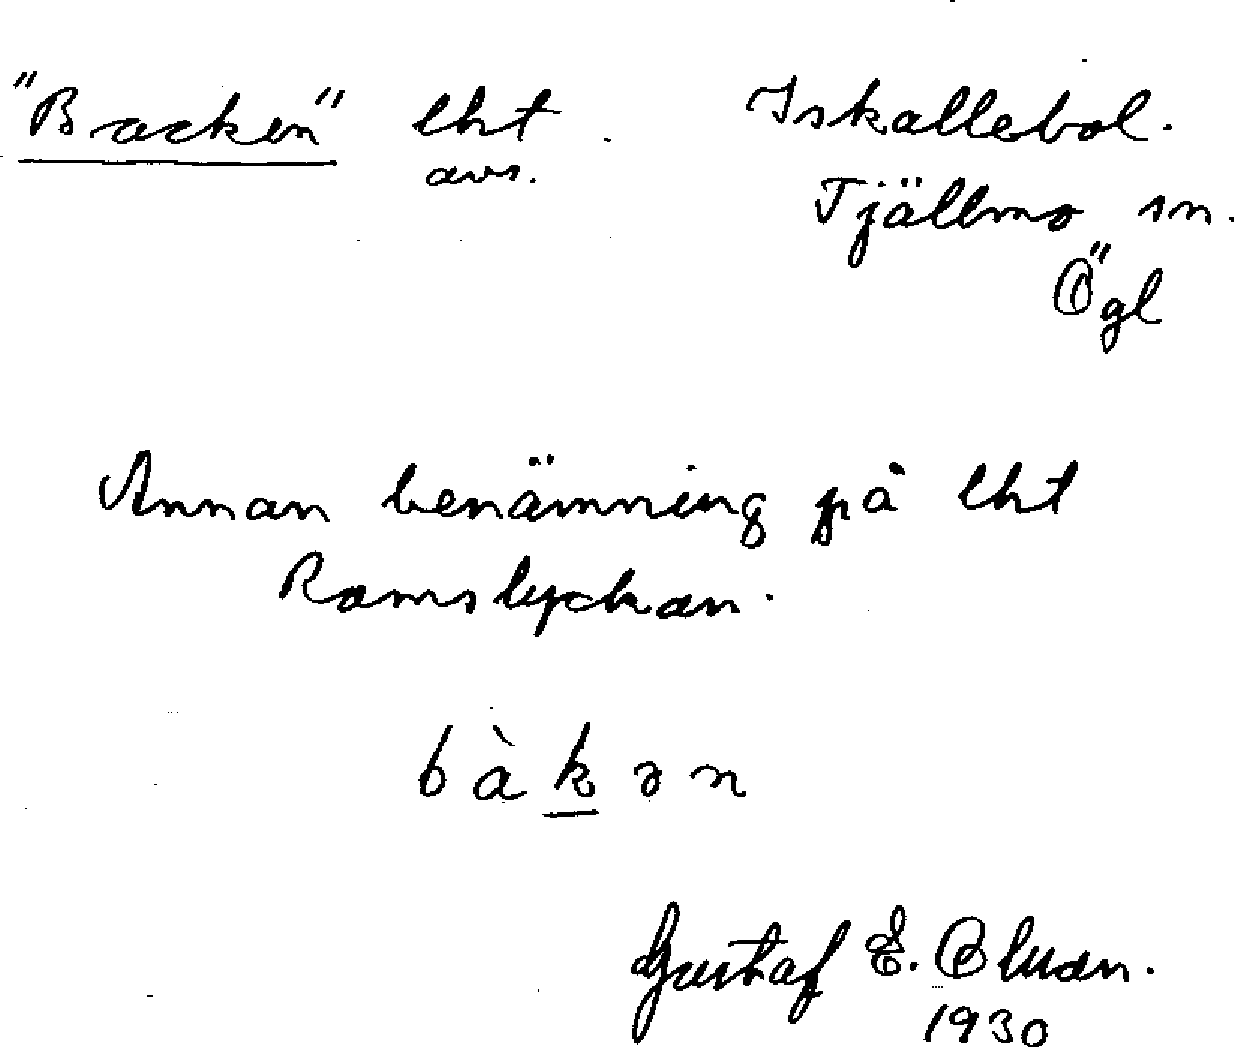 "Backen" lht Iskallebol.
avs. Tjällmo sn.
Ögl
Annan benämning på lht
Ramslyckan.
bàkən
Gustaf E.
1930